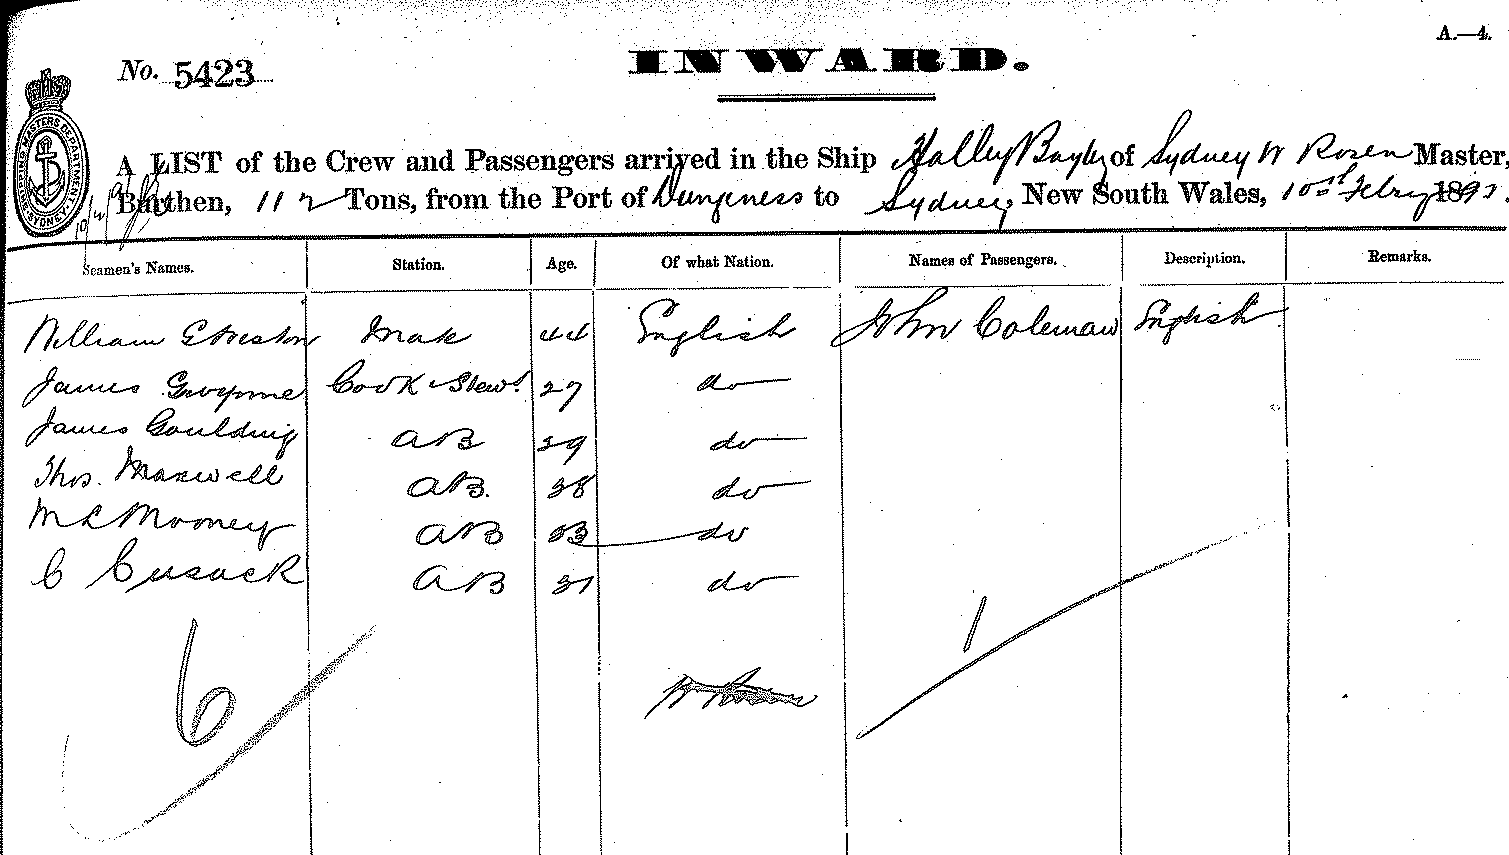 A.—4.
No. 5423
INWARD.
A LIST of the Crew and Passengers arrived in the Ship Halley Bayly of Sydney W Rosen Master,
Burthen, 112 Tons, from the Port of Dungeness to Sydney New South Wales, 10th Febry 1892.
Seamen's Names. Station. Age. Of what Nation. Names of Passengers. Description. Remarks.
William G Weston Mate 44 English John Coleman English
James Cook & Stewd. 27 do
James Goulding AB 29 do
Thos. Maxwell AB. 38 do
Mooney AB do
C Cusack AB 31 do
6 1
W Rosen